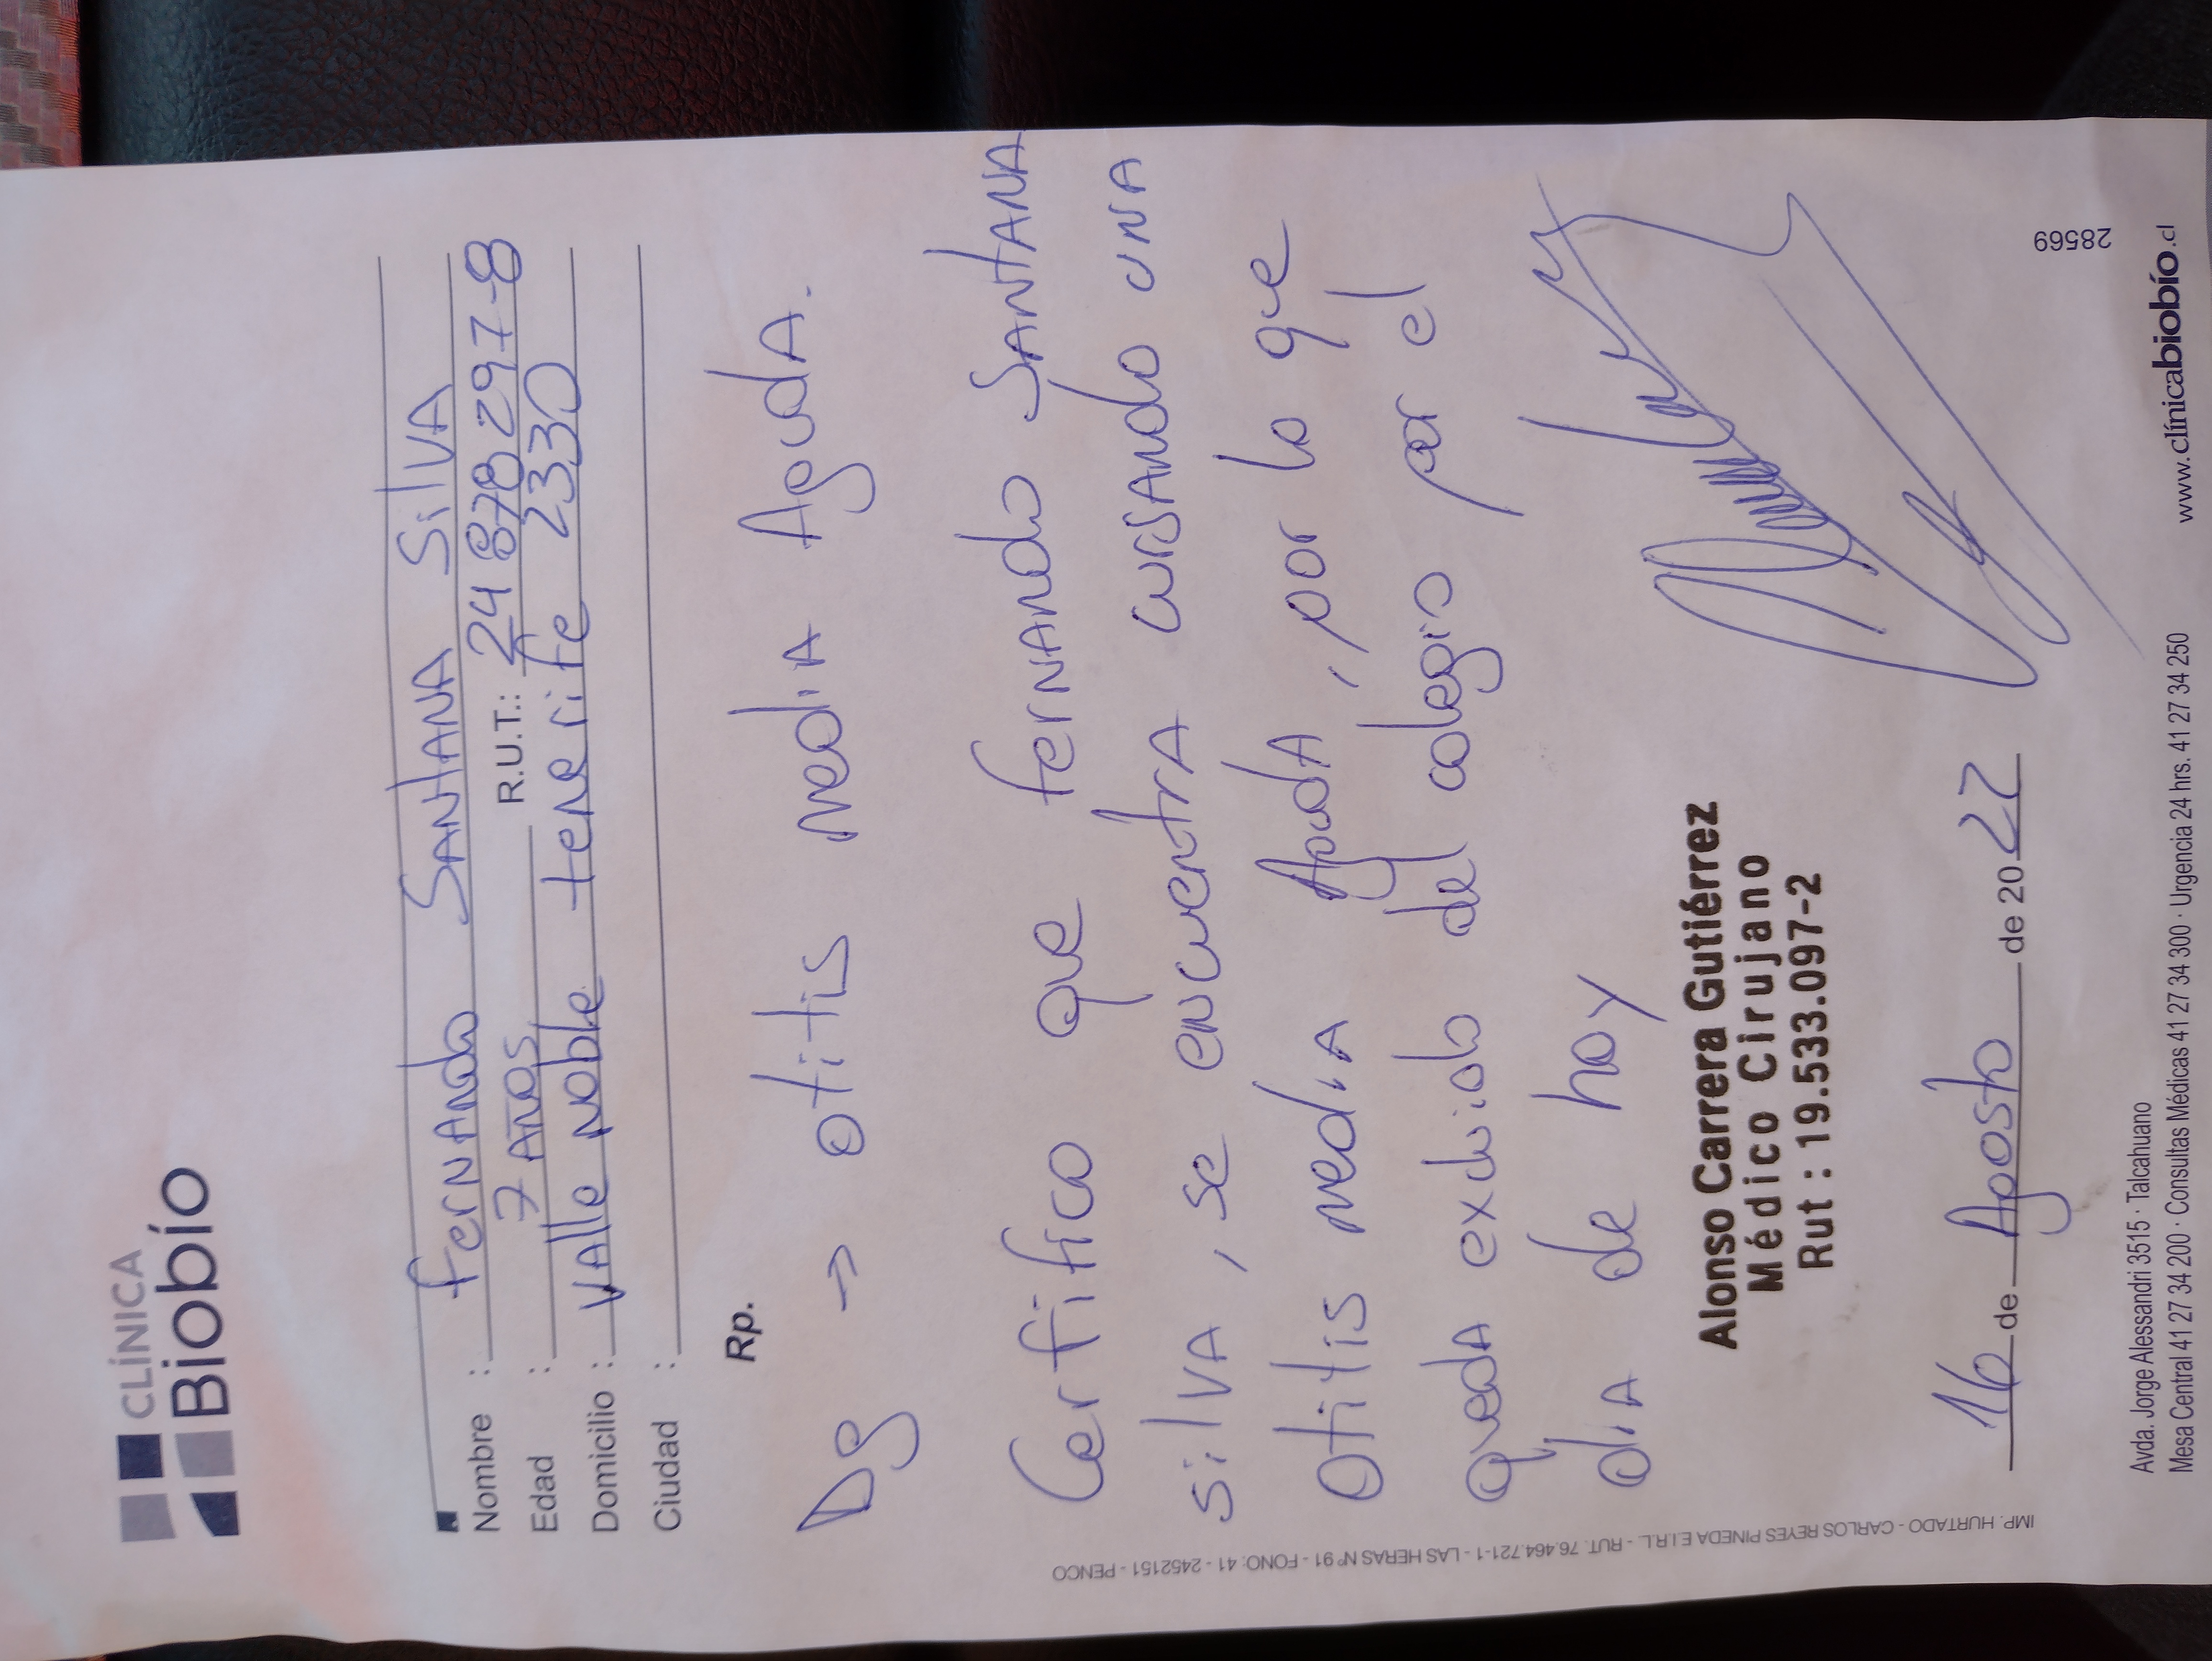 CLÍNICA
Biobío
Nombre : Fernando Santana Silva
Edad : 7 años R.U.T.: 24 878 297-8
Domicilio : Valle Noble tenerife 2330
Ciudad :
Rp.
Dg → Otitis media Aguda.
Certifico que Fernando Santana
Silva, se encuentra cursando una
Otitis media Aguda, por lo que
queda excluido del colegio por el
dia de hoy
Alonso Carrera Gutiérrez
Médico Cirujano
Rut : 19.533.097-2
16 de Agosto de 2022
28569
Avda. Jorge Alessandri 3515 · Talcahuano
Mesa Central 41 27 34 200 · Consultas Médicas 41 27 34 300 · Urgencia 24 hrs. 41 27 34 250
www.clínicabiobío.cl
IMP. HURTADO - CARLOS REYES PINEDA E.I.R.L. - RUT. 76.464.721-1 - LAS HERAS Nº 91 - FONO: 41 - 2452151 - PENCO